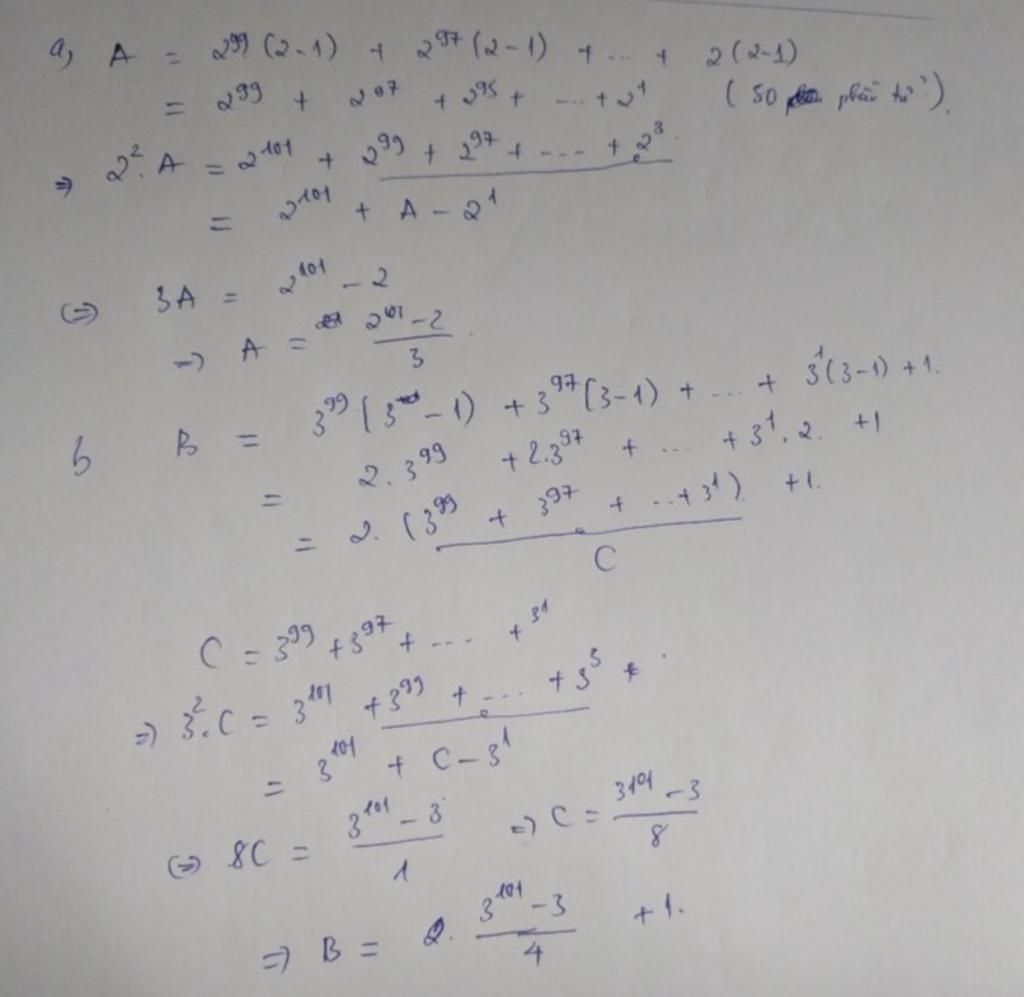 a, A = 2⁹⁹(2-1) + 2⁹⁷(2-1) + ... + 2(2-1)
= 2⁹⁹ + 2⁹⁷ + 2⁹⁵ + ... + 2¹ (50 phần tử).
⇒ 2².A = 2¹⁰¹ + 2⁹⁹ + 2⁹⁷ + ... + 2³.
= 2¹⁰¹ + A - 2¹
(⇒) 3A = 2¹⁰¹ - 2
⇒ A = (2¹⁰¹ - 2)/3.
b B = 3⁹⁹(3 - 1) + 3⁹⁷(3-1) + ... + 3¹(3-1) + 1.
= 2.3⁹⁹ + 2.3⁹⁷ + ... + 3¹.2. + 1
= 2.(3⁹⁹ + 3⁹⁷ + ... + 3¹) + 1.
C
C = 3⁹⁹ + 3⁹⁷ + ... + 3¹
⇒ 3².C = 3¹⁰¹ + 3⁹⁹ + ... + 3³
= 3¹⁰¹ + C - 3¹
(⇒) 8C = (3¹⁰¹ - 3)/1 ⇒ C = (3¹⁰¹ - 3)/8
⇒ B = 2. (3¹⁰¹ - 3)/4 + 1.